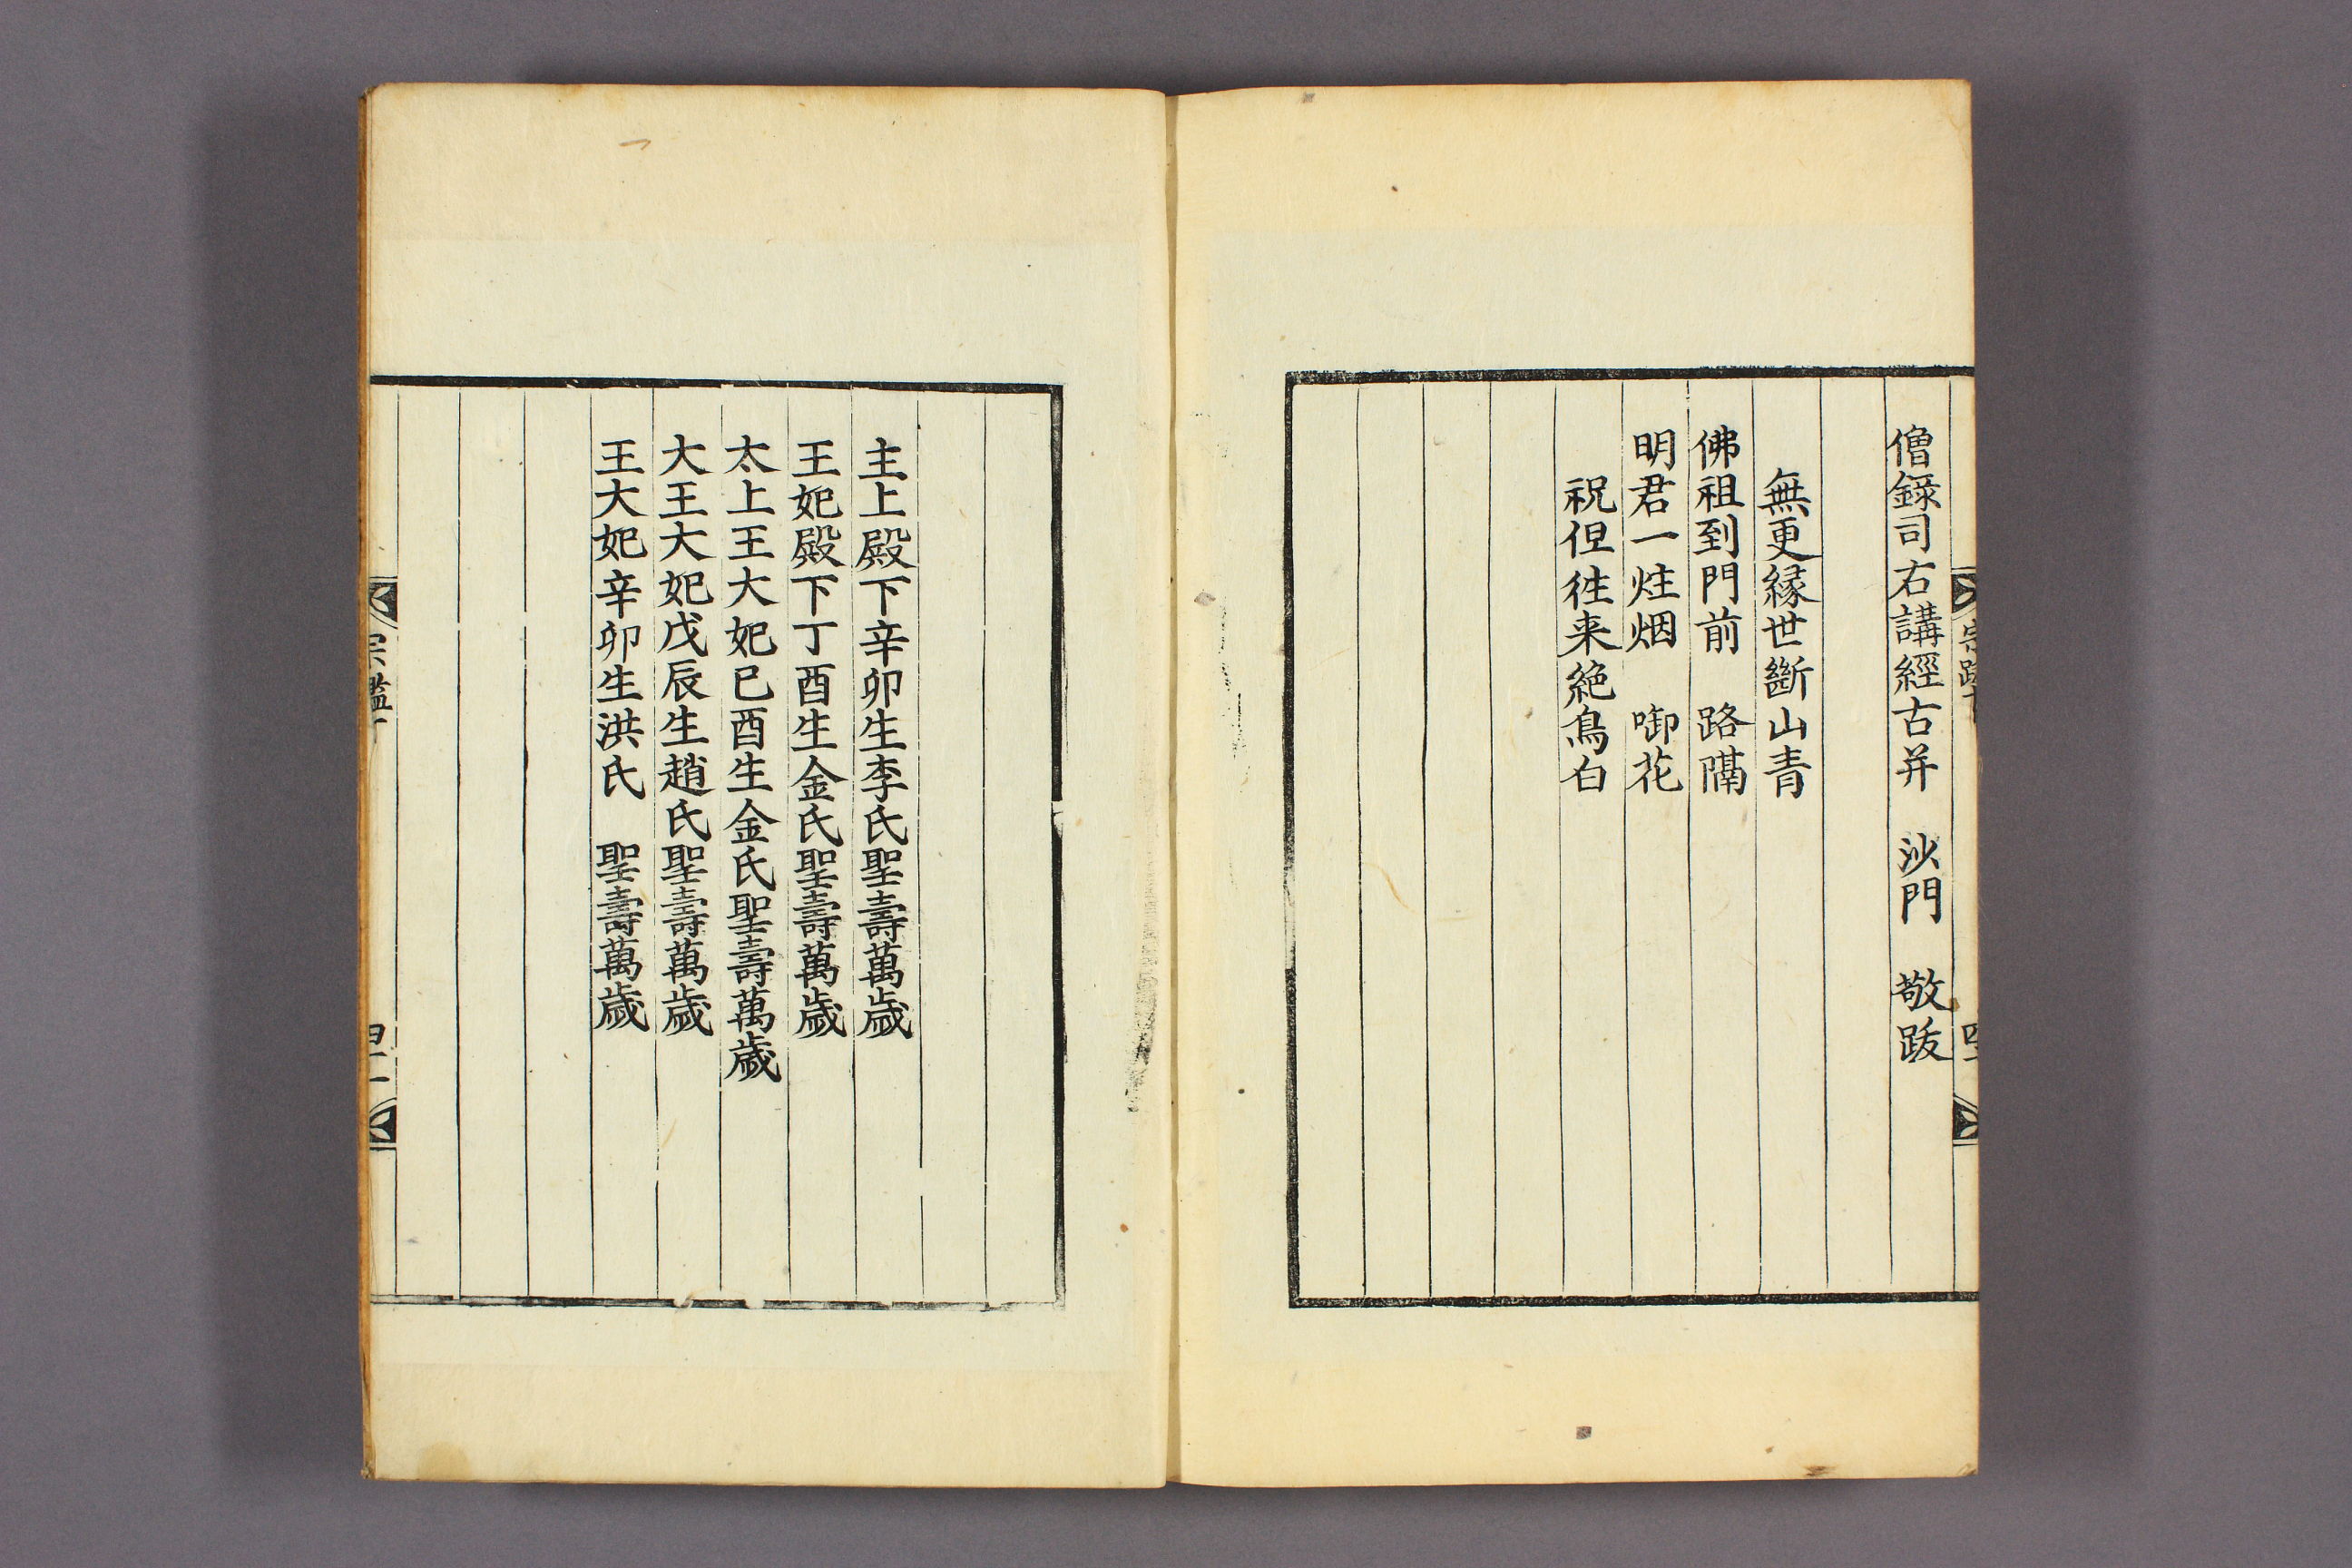 僧録司右講經古并　沙門　敬跋
無更緣世斷山青
佛祖到門前　路隔
明君一炷烟　啣花
祝但徃来絶鳥白
主上殿下辛卯生李氏聖壽萬歲
王妃殿下丁酉生金氏聖壽萬歲
太上王大妃己酉生金氏聖壽萬歲
大王大妃戊辰生趙氏聖壽萬歲
王大妃辛卯生洪氏　聖壽萬歲